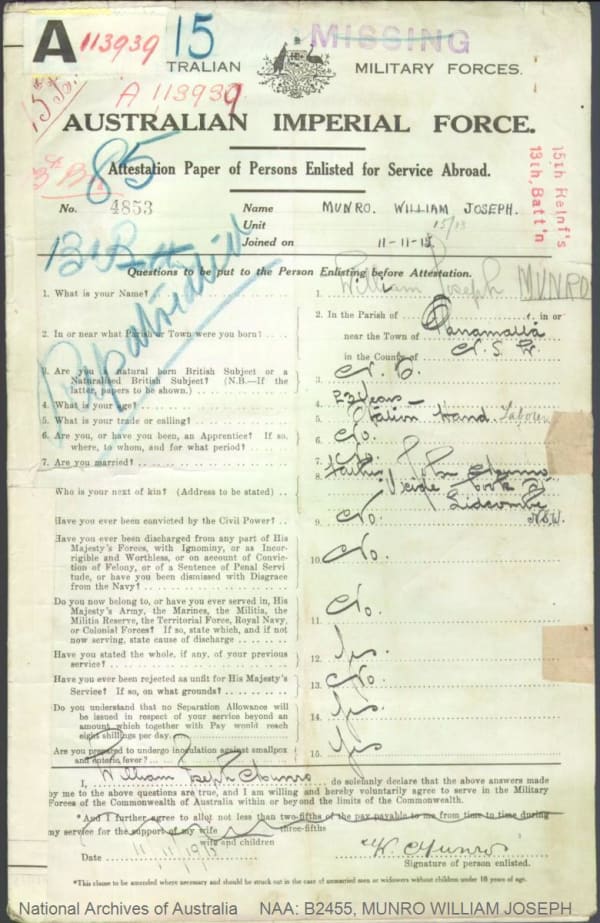 A 113939 15 MISSING
TRALIAN MILITARY FORCES.
A 113939
AUSTRALIAN IMPERIAL FORCE.
85
Attestation Paper of Persons Enlisted for Service Abroad.
15th Reinf's
13th, Batt'n
No. 4853 Name MUNRO. WILLIAM JOSEPH.
Unit 15/13
Joined on 11-11-15
Repatriated
Questions to be put to the Person Enlisting before Attestation.
1. What is your Name? 1. William Joseph MUNRO
2. In or near what Parish or Town were you born? 2. In the Parish of in or
near the Town of
in the County of N. S. W.
3. Are you a natural born British Subject or a
Naturalised British Subject? (N.B.—If the
latter, papers to be shown.) 3.
4. What is your age? 4. 23 Years
5. What is your trade or calling? 5. Hand. Labourer
6. Are you, or have you been, an Apprentice? If so,
where, to whom, and for what period? 6. No.
7. Are you married? 7.
Who is your next of kin? (Address to be stated) 8. Father John Munro
Lidcombe
N.S.W.
Have you ever been convicted by the Civil Power? 9. No.
Have you ever been discharged from any part of His
Majesty's Forces, with Ignominy, or as Incor-
rigible and Worthless, or on account of Convic-
tion of Felony, or of a Sentence of Penal Servi
tude, or have you been dismissed with Disgrace
from the Navy? 10. No.
Do you now belong to, or have you ever served in, His
Majesty's Army, the Marines, the Militia, the
Militia Reserve, the Territorial Force, Royal Navy,
or Colonial Forces? If so, state which, and if not
now serving, state cause of discharge 11. No.
Have you stated the whole, if any, of your previous
service? 12. Yes.
Have you ever been rejected as unfit for His Majesty's
Service? If so, on what grounds? 13. No.
Do you understand that no Separation Allowance will
be issued in respect of your service beyond an
amount which together with Pay would reach
eight shillings per day. 14. Yes.
Are you prepared to undergo inoculation against smallpox
and enteric fever? 15. Yes
I, William Joseph Munro do solemnly declare that the above answers made
by me to the above questions are true, and I am willing and hereby voluntarily agree to serve in the Military
Forces of the Commonwealth of Australia within or beyond the limits of the Commonwealth.
*And I further agree to allot not less than two-fifths of the pay payable to me from time to time during
three-fifths
my service for the support of my wife
wife and children
Date 11/11/1915 W Munro
Signature of person enlisted.
*This clause to be amended where necessary and should be struck out in the case of unmarried men or widowers without children under 18 years of age.
National Archives of Australia NAA: B2455, MUNRO WILLIAM JOSEPH